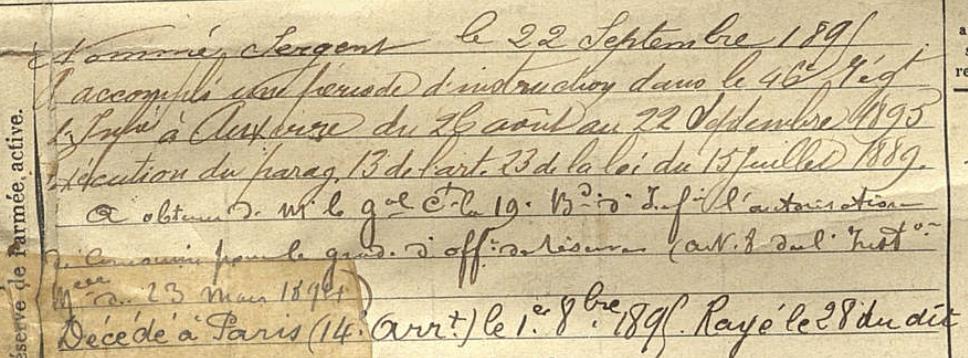 Nommé Sergent le 22 Septembre 1895
a accompli une période d'instruction dans le 46e Régt
d'Infie à Auxerre du 26 août au 22 Septembre 1895
exécution du parag. 13 de l'art. 23 de la loi du 15 Juillet 1889.
A obtenu de Mr le gal Ct la 19e Bde d'Inf. l'autorisation
de concourir pour le grade d'off. de réserve (art. 8 de l'Inston
du 23 mars 1894)
Décédé à Paris (14e Arrt) le 1er 8bre 1895. Rayé le 28 du dit
éserve de l'armée active.
a
re